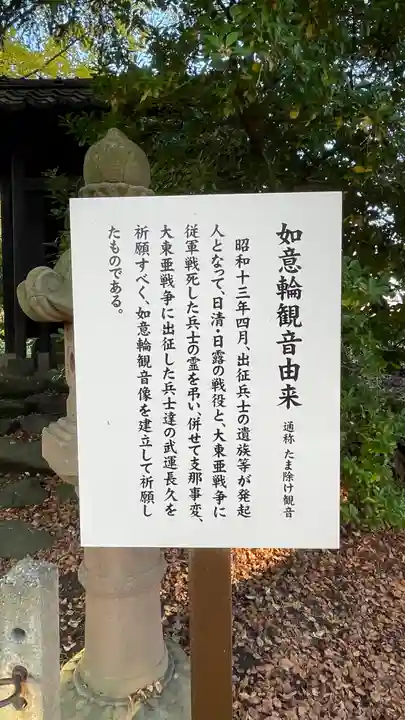 如意輪観音由来
通称 たま除け観音
昭和十三年四月、出征兵士の遺族等が発起
人となって、日清・日露の戦役と、大東亜戦争に
従軍戦死した兵士の霊を弔い、併せて支那事変、
大東亜戦争に出征した兵士達の武運長久を
祈願すべく、如意輪観音像を建立して祈願し
たものである。